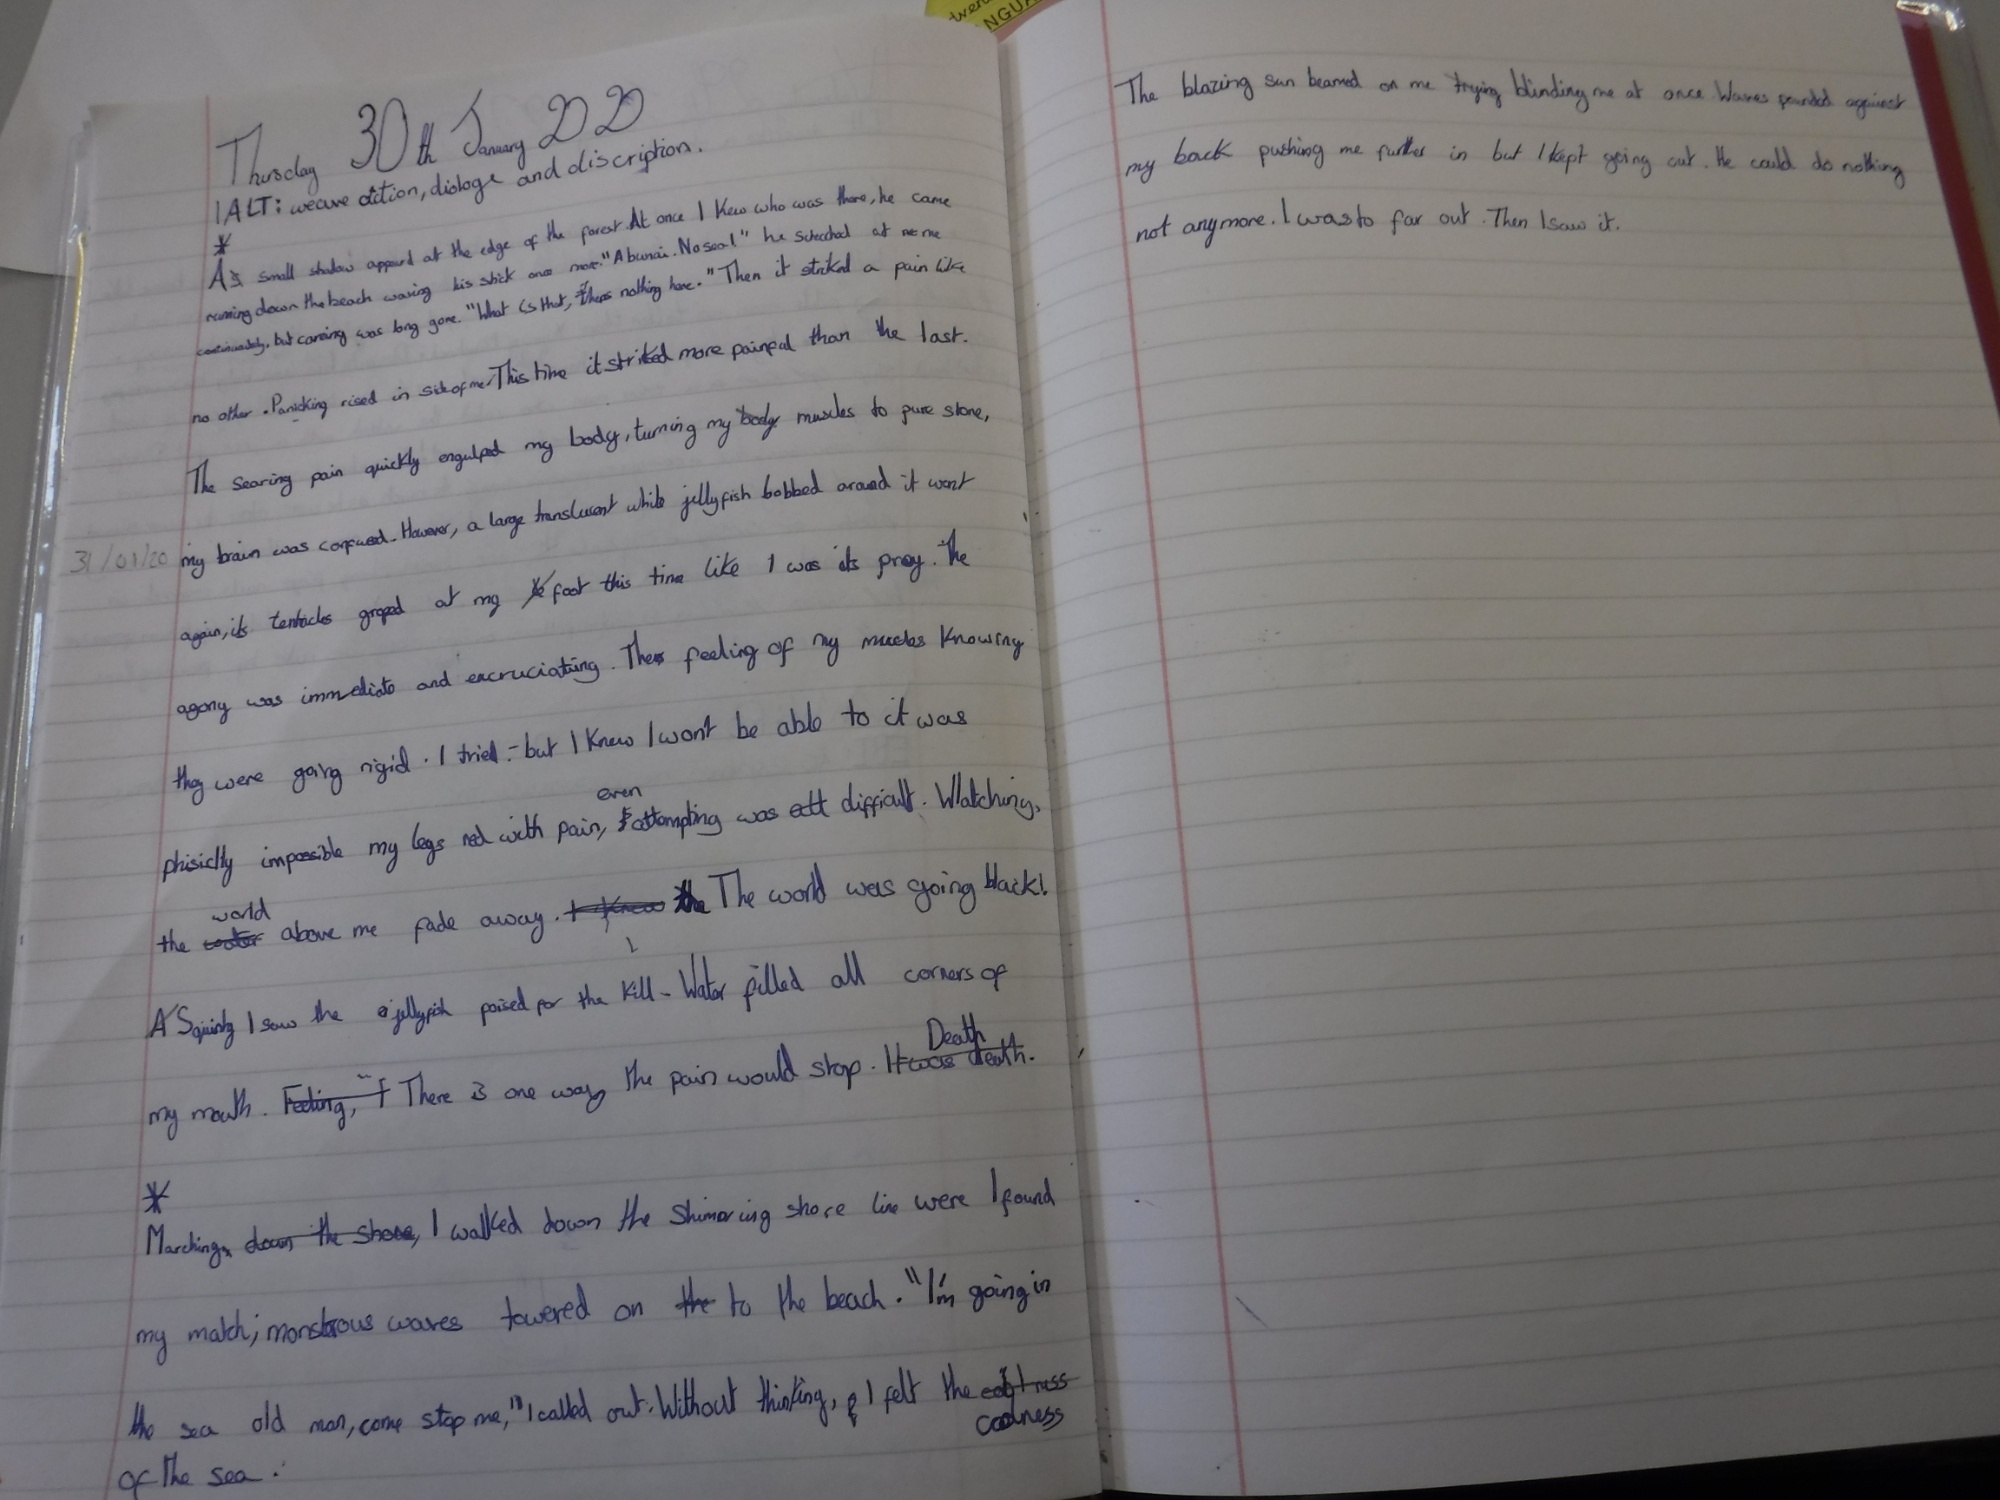 wem
NGUA
Thursday 30th January 2020
IALT: weave action, dialoge and discription.
*
A small shadow appeard at the edge of the forest. At once I Kew who was there, he came
running down the beach waving his stick once more. "Abunai. No sea!" he screched at me
continuously, but caring was long gone. "What is that, thers nothing here." Then it striked a pain like
no other. Panicking rised in side of me. This time it striked more painful than the last.
The searing pain quickly engulfed my body, turning my body muscles to pure stone,
my brain was confused. However, a large translucent white jellyfish bobbed around it went
31/01/20
again, its tentacles groped at my foot this time like I was its prey. The
agony was immediate and excruciating. The feeling of my muscles Knowing
they were going rigid. I tried - but I Knew I wont be able to it was
phisiclly impossible my legs red with pain, even attempting was difficult. Watching,
the water world above me fade away. I Knew the The world was going black!
Squinty I saw the jellyfish poised for the Kill - Water filled all corners of
my mouth. Feeling, There is one way the pain would stop. It was death. Death
*
Marching down the shore, I walked down the shimoring shore line were I found
my match; monstrous waves towered on the to the beach. "I'm going in
the sea old man, come stop me," I called out. Without thinking, I felt the
coolness
of the sea.
The blazing sun beamed on me trying blinding me at once Waves pounded against
my back pushing me further in but I kept going out. He could do nothing
not anymore. I was to far out. Then I saw it.